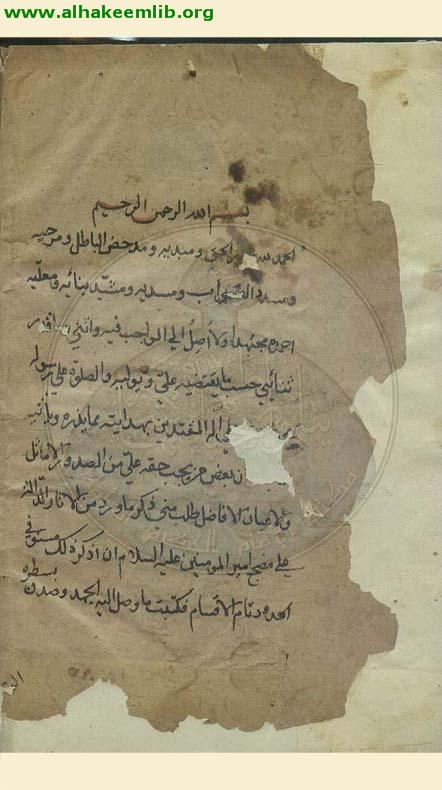 www.alhakeemlib.org
بسم الله الرحمن الرحيم
الحمد لله الحق ومبديه ومدحض الباطل ومرحيه
ومسدد الصواب ومسديه ومشيد بنائه ومعليه
احمده مجتهدا ولا اصل الى الواجب فيه واثنى
ثنائي حسب ما يقتضيه على ويوليه والصلوة على رسوله
آله المقتدين بهدايته بما يذره ويأتيه
ان بعض من يجب حقه على من الصدور الاماثل
والاعيان الافاضل طلب منى ذكر ما ورد من الآثار الدالة
على مضجع امير المومنين عليه السلام ان اذكر ذلك مستوفى
الحدود تام الاقسام فكتبت ما وصل اليه الجهد وصدق سطره